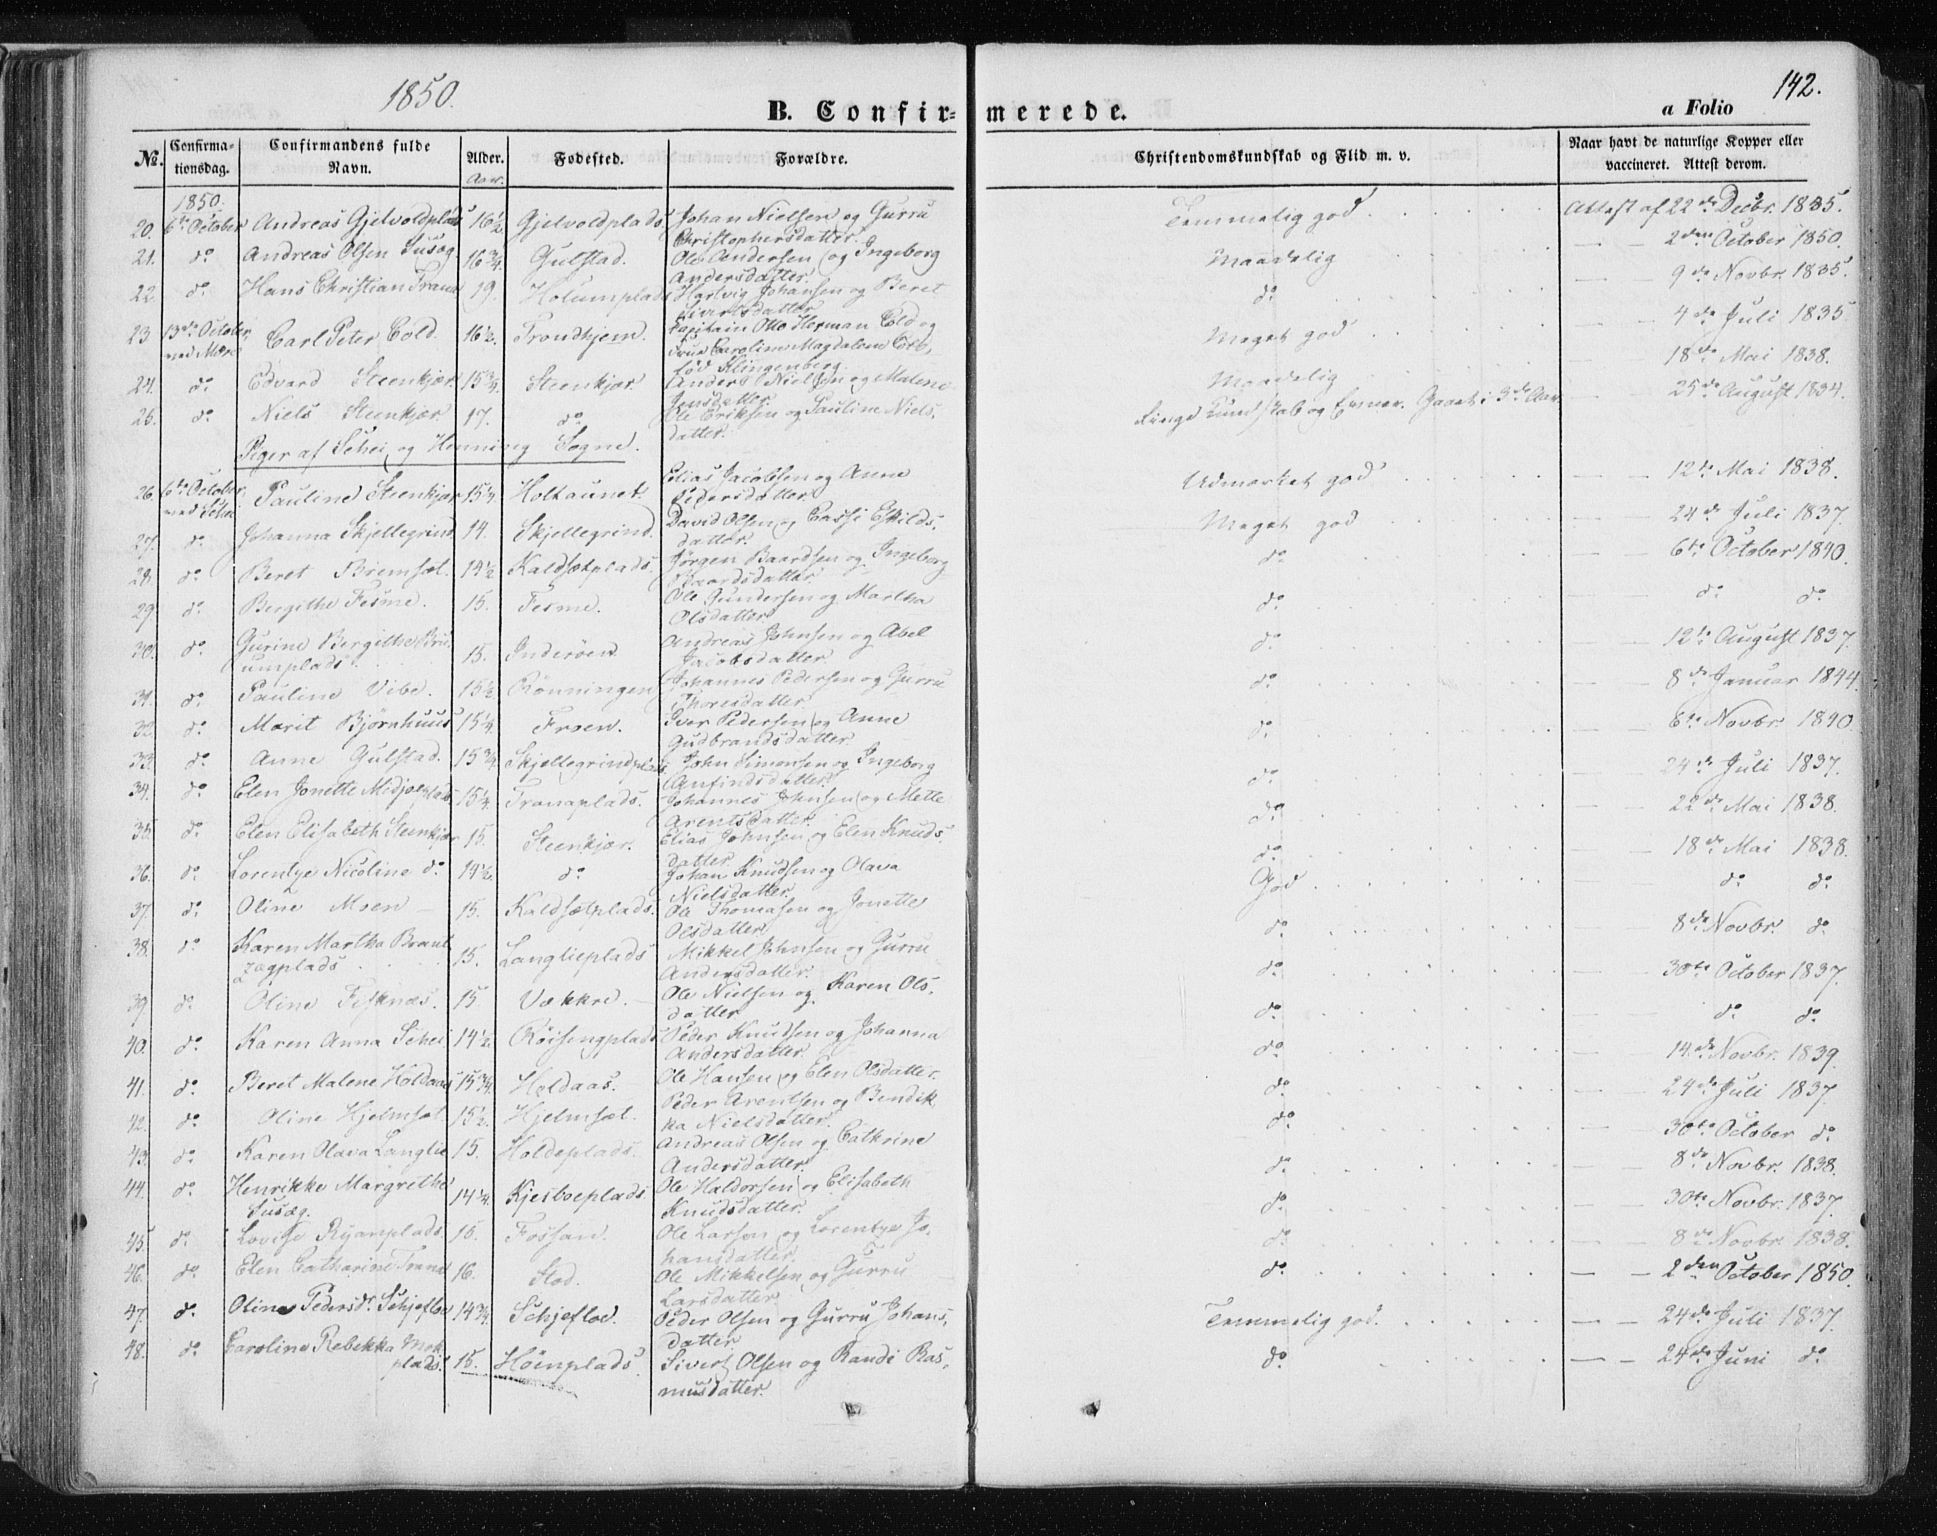 1850.
142.
B. Confir=merede.
a Folio
No. Confirmationsdag. Confirmandens fulde Navn. Alder. Aar. Fødested. Forældre. Christendomskundskab og Flid m. v. Naar havt de naturlige Kopper eller vaccineret. Attest derom.
1850.
20. 6te October Andreas Gjelvoldplads 16½ Gjelvoldplads Johan Nielsen og Gurru Christophersdatter. Temmelig god Attest af 22de Decbr. 1835.
21. do Andreas Olsen Susæg 16¾. Gulstad. Ole Andersen og Ingeborg Andersdatter. Maadelig — — 2den October 1850.
22. do Hans Christian Trana 19. Holumplads Hartvig Johansen og Beret Sivertsdatter do — — 9de Novbr. 1835.
23 13de October med Mære Carl Peter Cold. 16½. Trondhjem. Capitain Otto Herman Cold og Frue Caroline Magdalene Cold, fød Klingenberg. Meget god — — 4de Juli 1835
24. do Edvard Steenkjær. 15¾. Steenkjær Anders Nielsen og Malene Jensdatter. Maadelig — — 18de Mai 1838.
25. do Niels Steenkjær. 17. do Ole Eriksen og Pauline Nielsdatter. Ringe Kundskab og Evner. Gaaet i 3de Aar — — 25de August 1834.
Piger af Schei og Henning Sogne.
26. 6te October med Schei Pauline Steenkjær 15¼ Holtaunet. Elias Jacobsen og Anne Pedersdatter Udmærket god — — 12te Mai 1838.
27. do Johanna Skjellegrind 14. Skjellegrind. David Olsen og Cassi Eskildsdatter. Meget god — — 24de Juli 1837.
28. do Beret Bremsæt. 14½ Kaldsætplads. Jørgen Baardsen og Ingeborg Baardsdatter. do — — 6te October 1840.
29. do Bergithe Fesme. 15. Fesme. Ole Gundersen og Martha Olsdatter do — — do do
30. do Gurine Bergithe umplads 15. Inderøen Andreas Johnsen og Abel Jacobsdatter do — — 12te August 1837.
31. do Pauline Vibe. 15½ Rönningen Johannes Pedersen og Gurru Thoresdatter do — — 8de Januar 1844.
32. do Marit Bjørnhuus 15¼ Froen. Iver Pedersen og Anne Gudbrandsdatter do — — 6te Novbr 1840.
33. do Anne Gulstad. 15¾ Skjellegrindplads John Simonsen og Ingeborg Anfindsdatter. do — — 24de Juli 1837.
34. do Elen Jonette Midjoplads 15¼. Tranaplads. Johannes Johnsen og Mette Arentsdatter. do — — 22de Mai 1838.
35. do Elen Elisabeth Steenkjær 15. Steenkjær. Elias Johnsen og Elen Knudsdatter. do — — 18de Mai 1838.
36. do Lorentze Nicoline do 14½. do Johan Knudsen og Olava Nielsdatter God — — do do
37. do Oline Moen — 15. Kaldsætplads. Ole Thomasen og Jonette Olsdatter do — — 8de Novbr do
38. do Karen Martha Brandtzægplads 15. Langlieplads Mikkel Johnsen og Gurru Andersdatter. do — — 30te October 1837.
39. do Oline Fisknæs. 15. Vækkre. Ole Nielsen og Karen Olsdatter do — — do do
40. do Karen Anna Schei 14½ Röisengplads Peder Knudsen og Johanna Andersdatter. do — — 14de Novbr. 1839.
41. do Beret Malene Holdaas 15¾ Holdaas. Ole Hansen og Elen Olsdatter. do — — 24de Juli 1837.
42. do Oline Hjelmsæt 15½. Hjelmsæt. Peder Arentsen og Bendikka Nielsdatter. do — — 30te October do
43. do Karen Olava Langlie 15. Holdeplads. Andreas Olsen og Cathrine Andersdatter. do — — 8de Novbr. 1838.
44. do Henrikke Margrethe Susæg. 14¼. Kjesboeplads Ole Haldorsen og Elisabeth Knudsdatter. do — — 30te Novbr. 1837.
45. do Lovise Ryanplads. 15. Fossan. Ole Larsen og Lorentze Johansdatter. do — — 8de Novbr. 1838.
46. do Elen Catharine Trana 16. Stod. Ole Mikkelsen og Gurru Larsdatter. do — — 2den October 1850.
47. do Oline Pedersdr. Schjefloe 14¾. Schjefloe. Peder Olsen og Gurru Johansdatter Temmelig god. — — 24de Juli 1837.
48. do Caroline Rebekka plads. 15. Höinplads. Sivert Olsen og Randi Rasmusdatter. do — — 24de Juni do